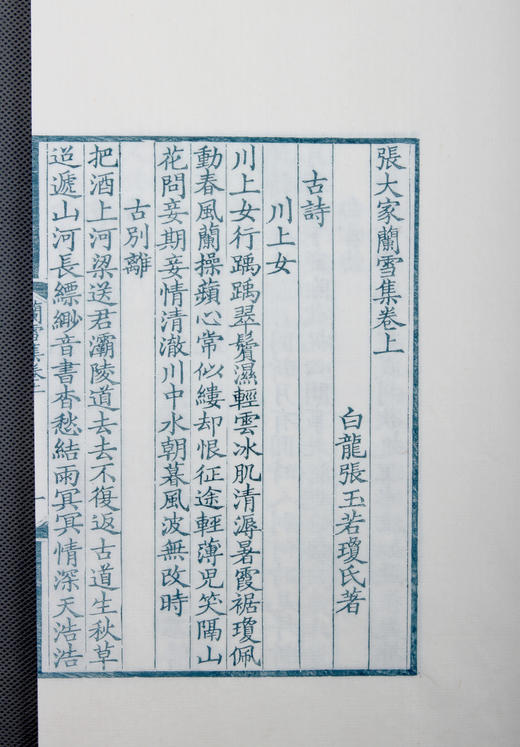 張大家蘭雪集卷上
白龍張玉若瓊氏著
古詩
川上女
川上女行踽踽翠鬢濕輕雲冰肌清溽暑霞裾瓊佩
動春風蘭操蘋心常似縷却恨征途輕薄兒笑隔山
花問妾期妾情清澈川中水朝暮風波無改時
古別離
把酒上河梁送君灞陵道去去不復返古道生秋草
迢遞山河長縹緲音書杳愁結雨冥冥情深天浩浩
蘭雪集卷上
一